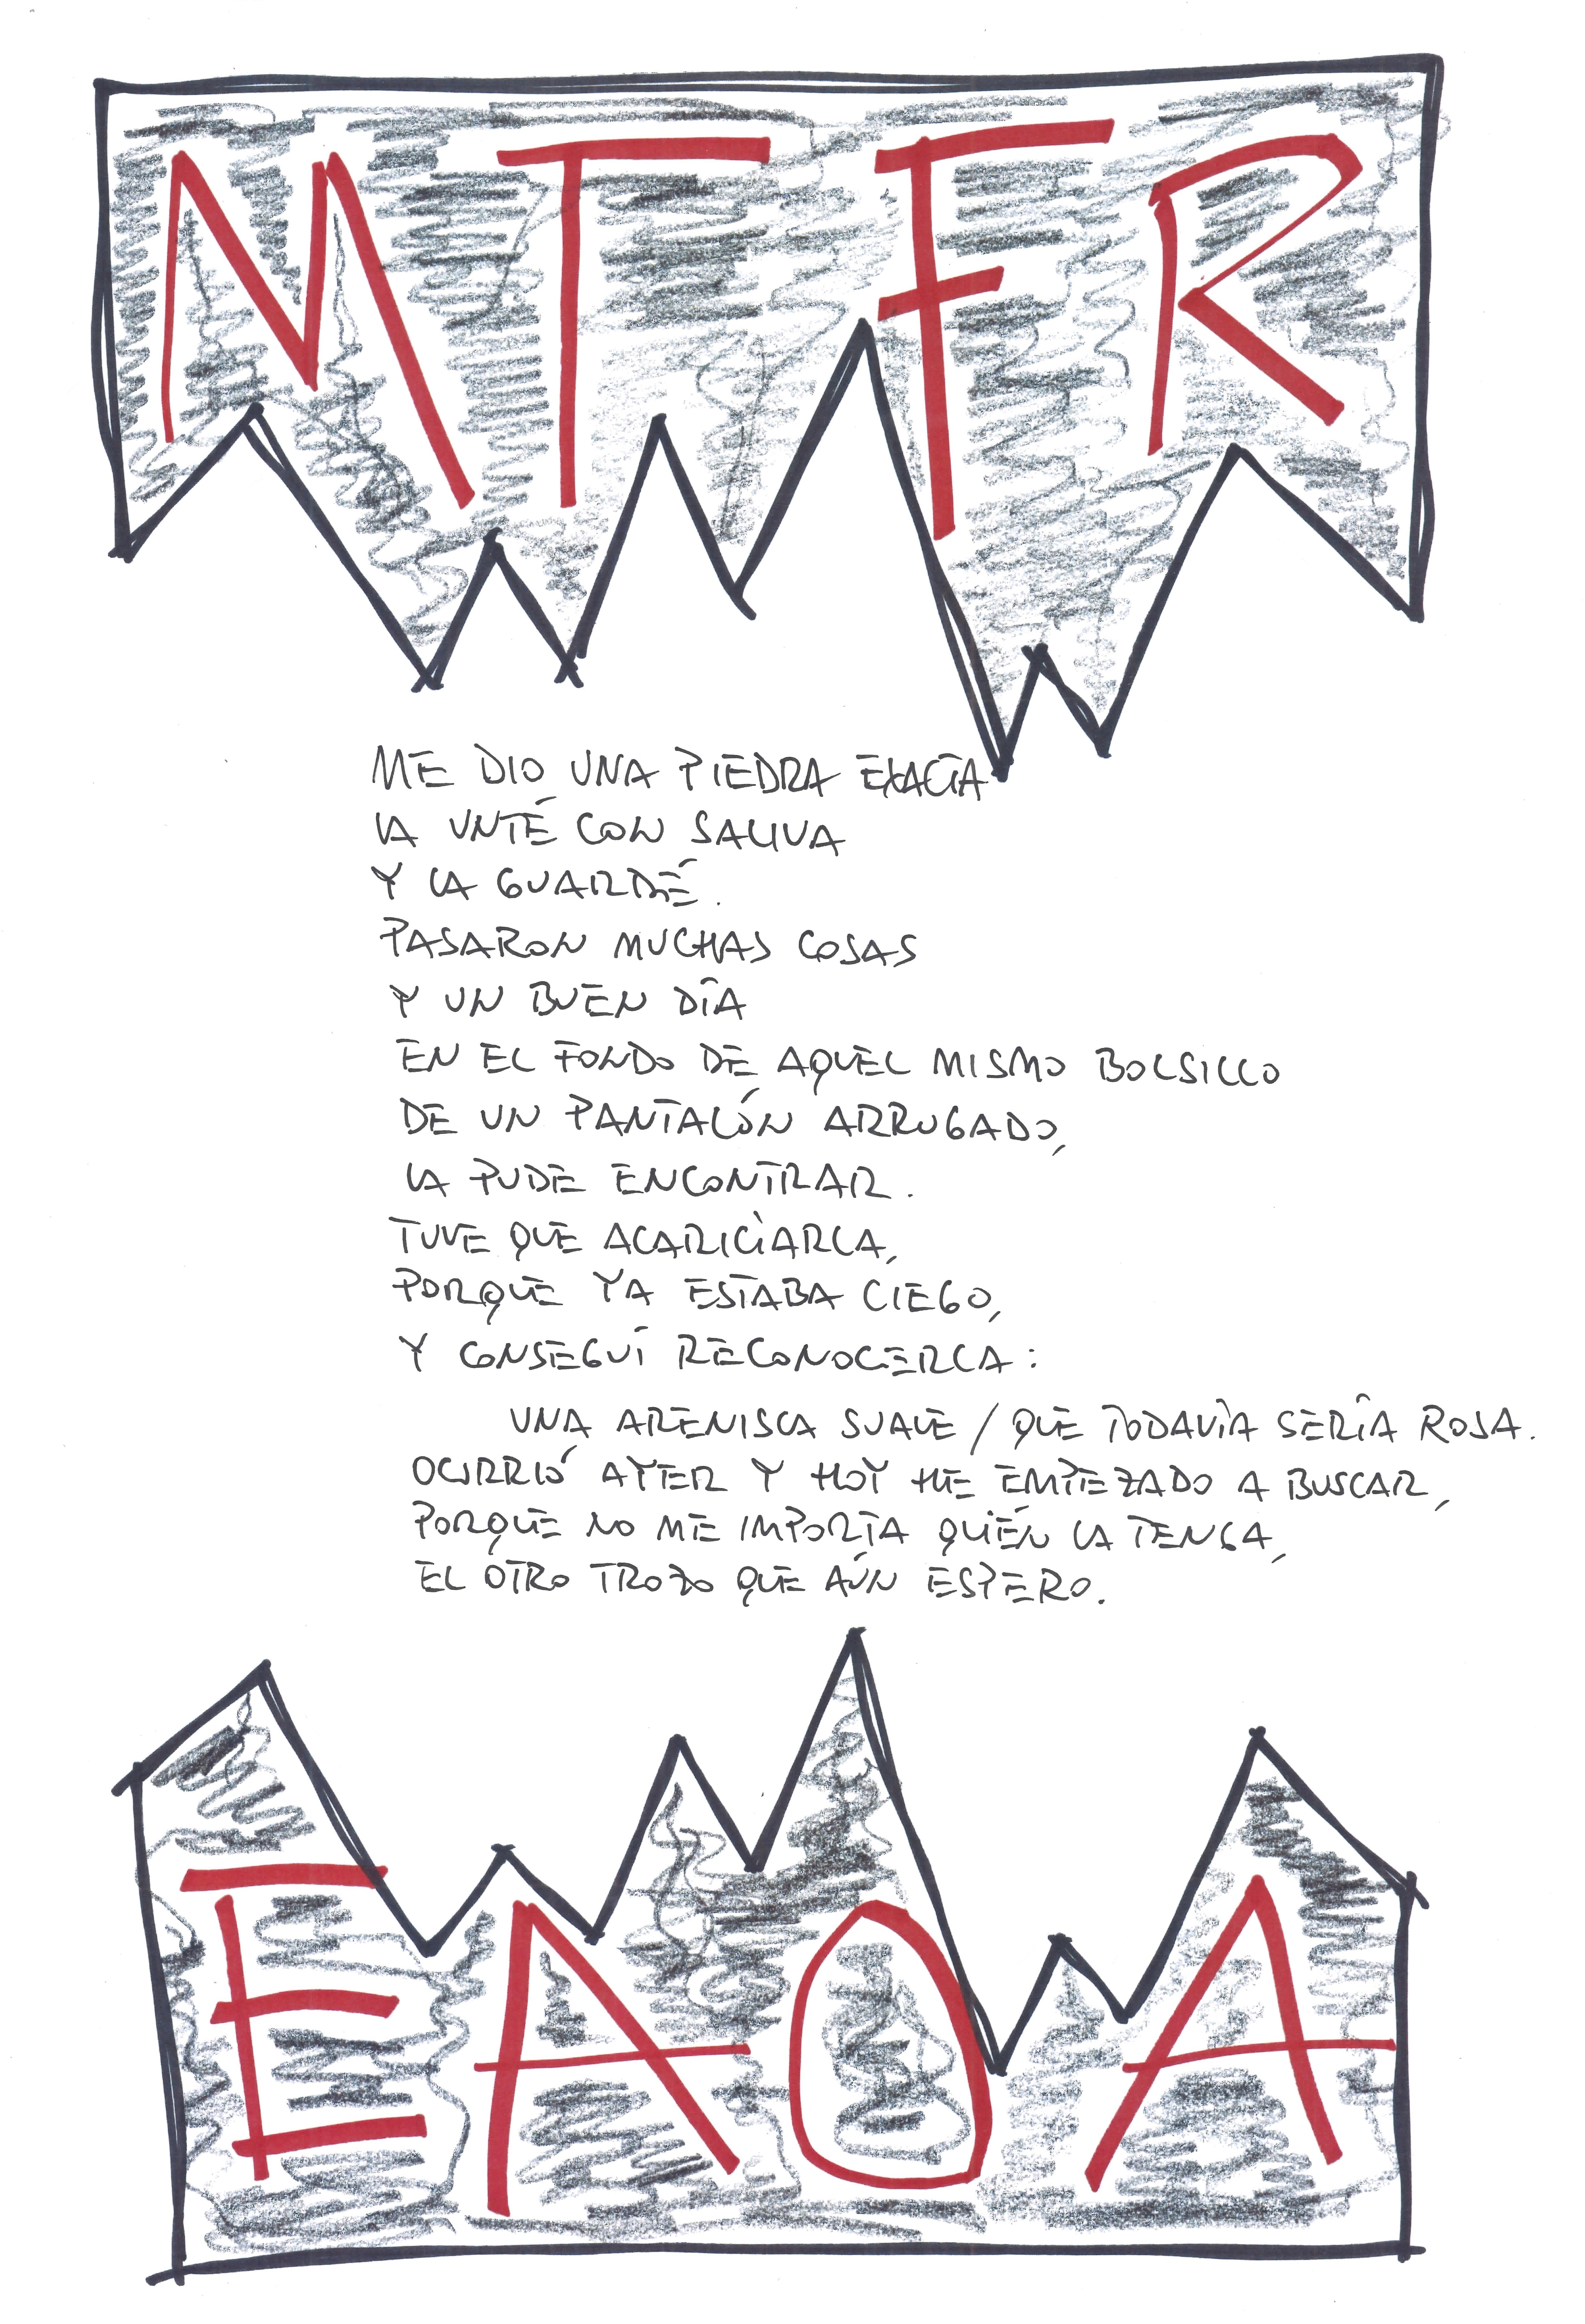 M T F R
ME DIO UNA PIEDRA EXACTA
LA UNTÉ CON SALIVA
Y LA GUARDÉ.
PASARON MUCHAS COSAS
Y UN BUEN DÍA
EN EL FONDO DE AQUEL MISMO BOLSILLO
DE UN PANTALÓN ARRUGADO,
LA PUDE ENCONTRAR.
TUVE QUE ACARICIARLA,
PORQUE YA ESTABA CIEGO,
Y CONSEGUÍ RECONOCERLA:
UNA ARENISCA SUAVE / QUE TODAVÍA SERÍA ROSA.
OCURRIÓ AYER Y HOY HE EMPEZADO A BUSCAR,
PORQUE NO ME IMPORTA QUIÉN LA TENGA,
EL OTRO TROZO QUE AÚN ESPERO.
E A O A